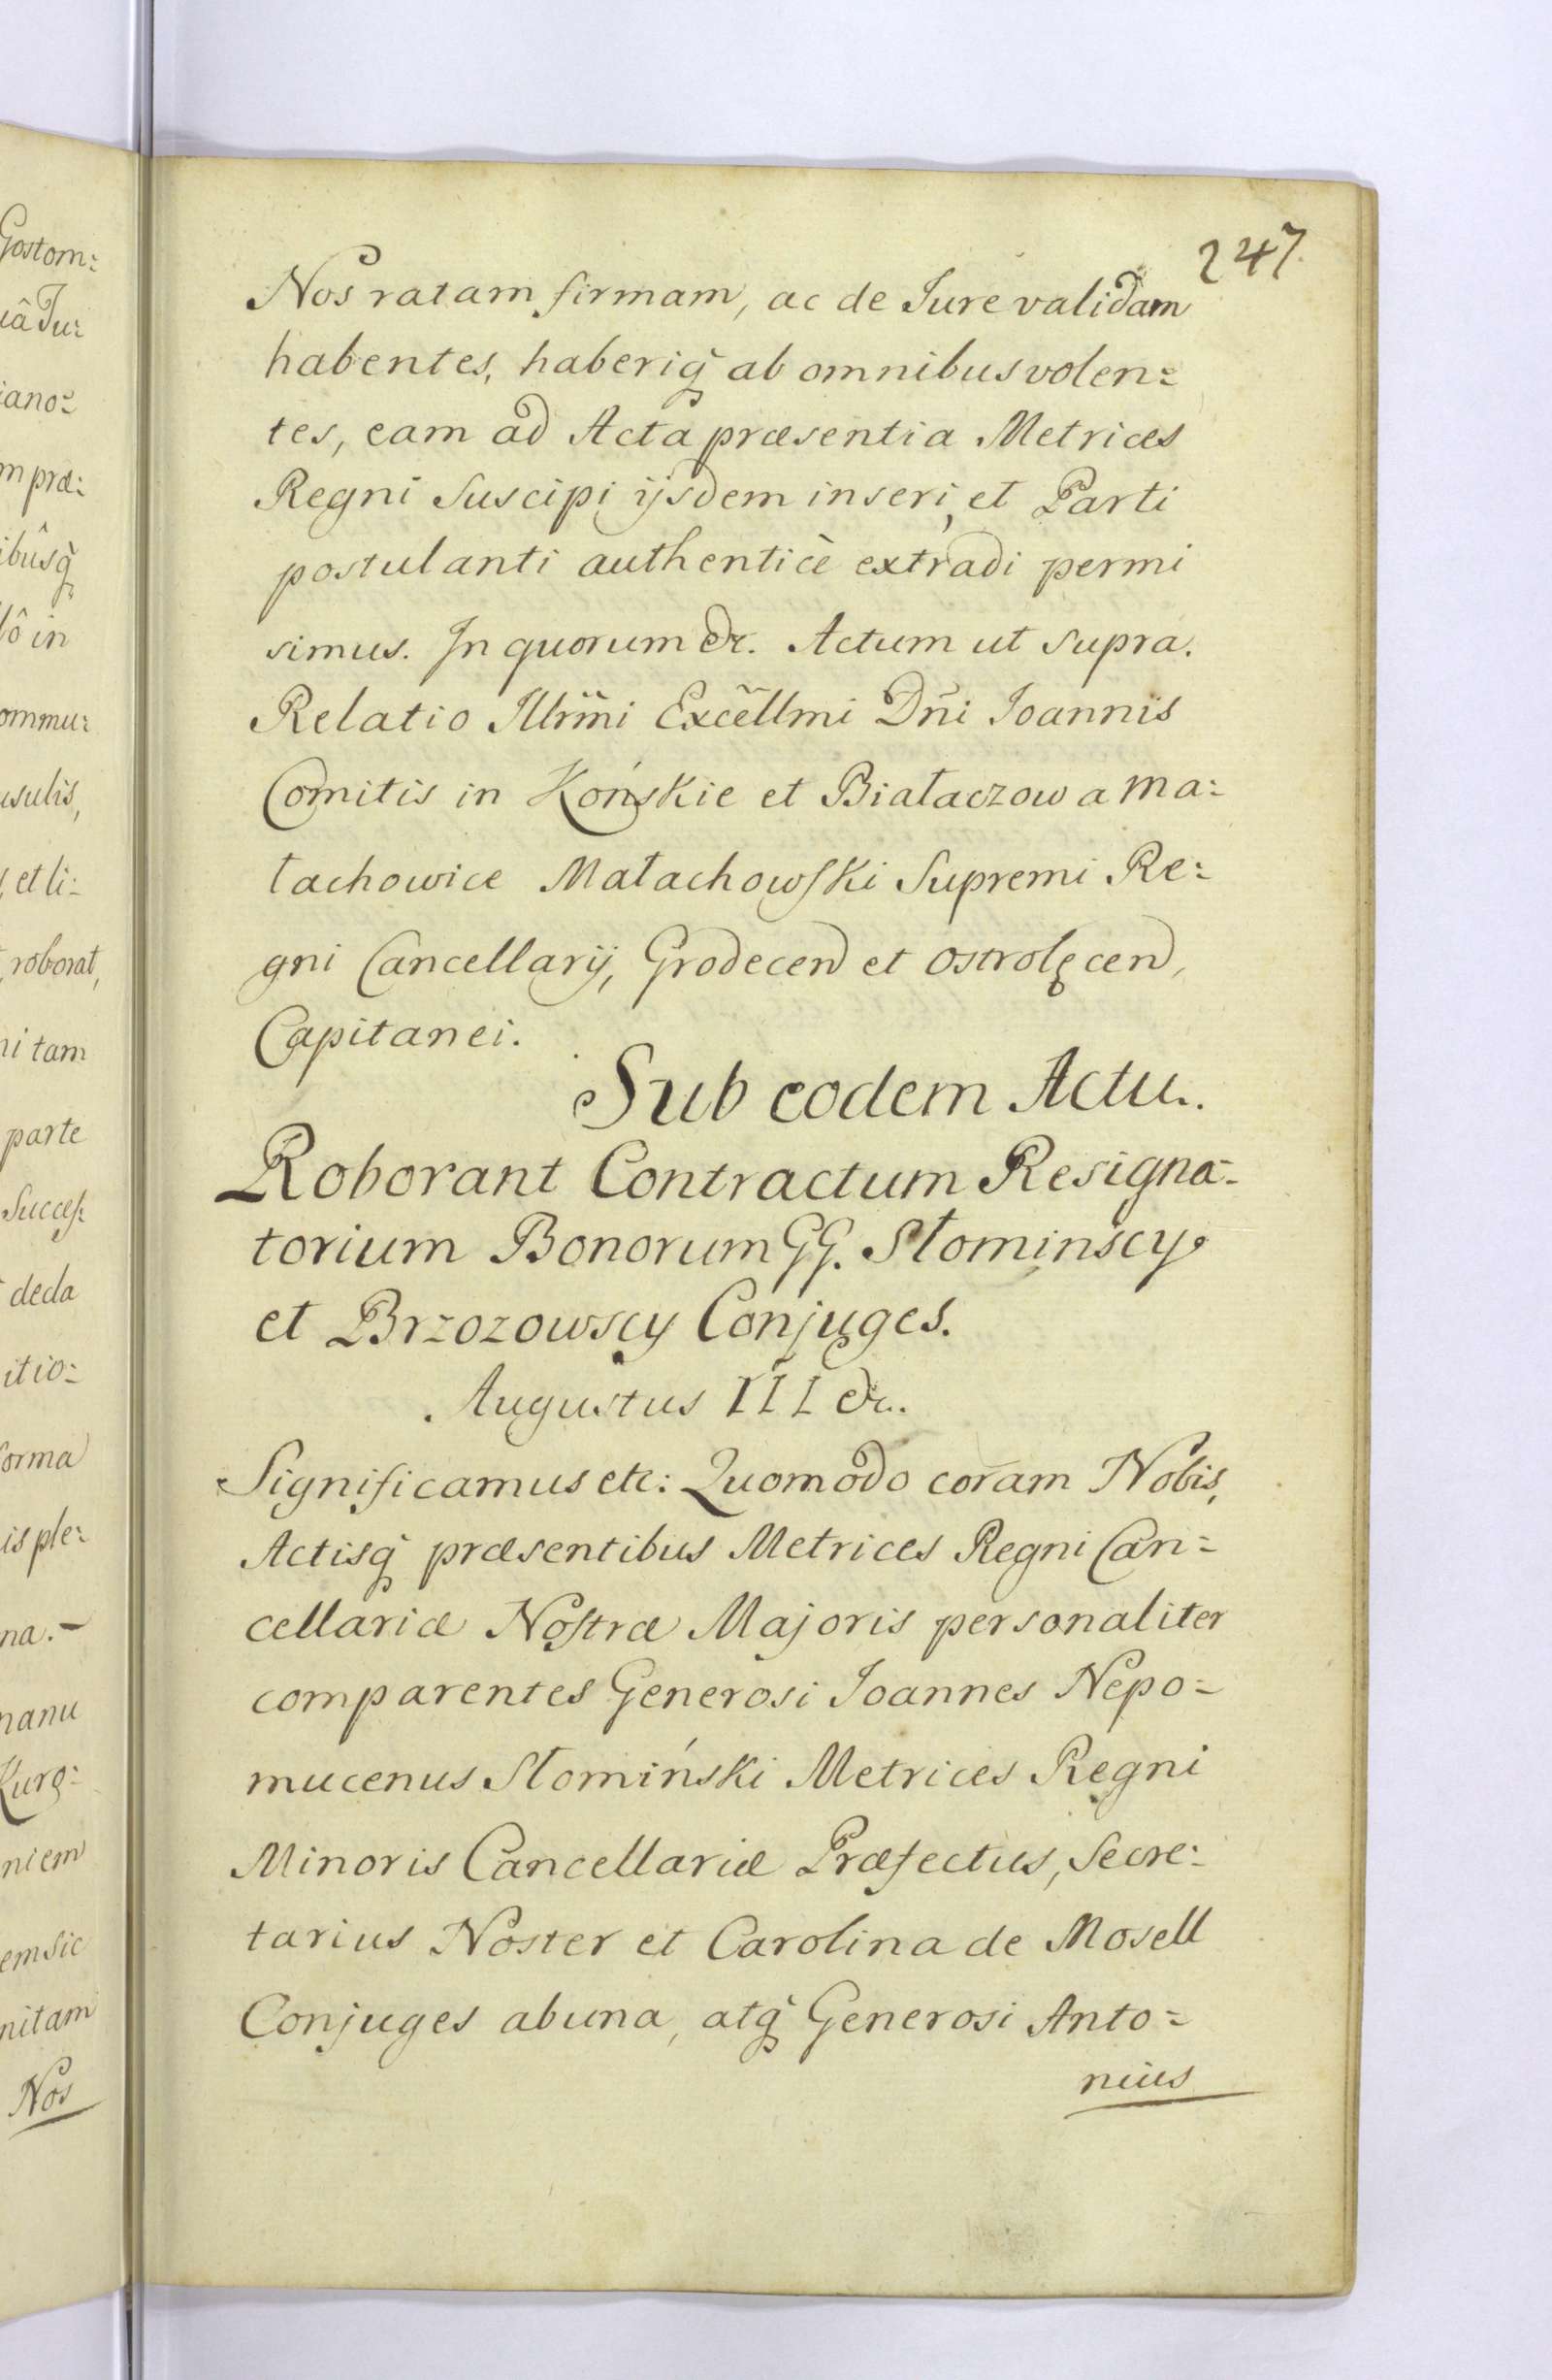 Gostom:
iâ Ju:
iano:
m præ:
ibûsq̀
lô in
ommu:
usulis,
et li:
roborat,
ni tam
parte
Succes:
deda
itio:
forma
is ple:
na.-
manu
Kuro:
niem
em sic
nitam
Nos
247.
Nos ratam firmam, ac de Jure validam
habentes, haberiq̀ ab omnibus volen:
tes, eam ad Acta præsentia Metrices
Regni Suscipi ijsdem inseri, et Parti
postulanti authenticè extradi permi
simus. In quorum &c. Actum ut supra.
Relatio Illr̃mi Excẽllmi Dñi Joannis
Comitis in Końskie et Białaczow a Ma:
łachowice Małachowski Supremi Re:
gni Cancellarij, Grodecen et Ostrolęcen,
Capitanei.
Sub eodem Actu.
Roborant Contractum Resigna-
torium Bonorum GG. Słominscy
et Brzozowscy Conjuges.
Augustus III &c.
Significamus etc: Quomodo coram Nobis,
Actisq̀ præsentibus Metrices Regni Can:
cellariæ Nostræ Majoris personaliter
comparentes Generosi Joannes Nepo:
mucenus Słomiński Metrices Regni
Minoris Cancellariæ Præfectus, Secre:
tarius Noster et Carolina de Mosell
Conjuges ab una, atq̀ Generosi Anto:
nius